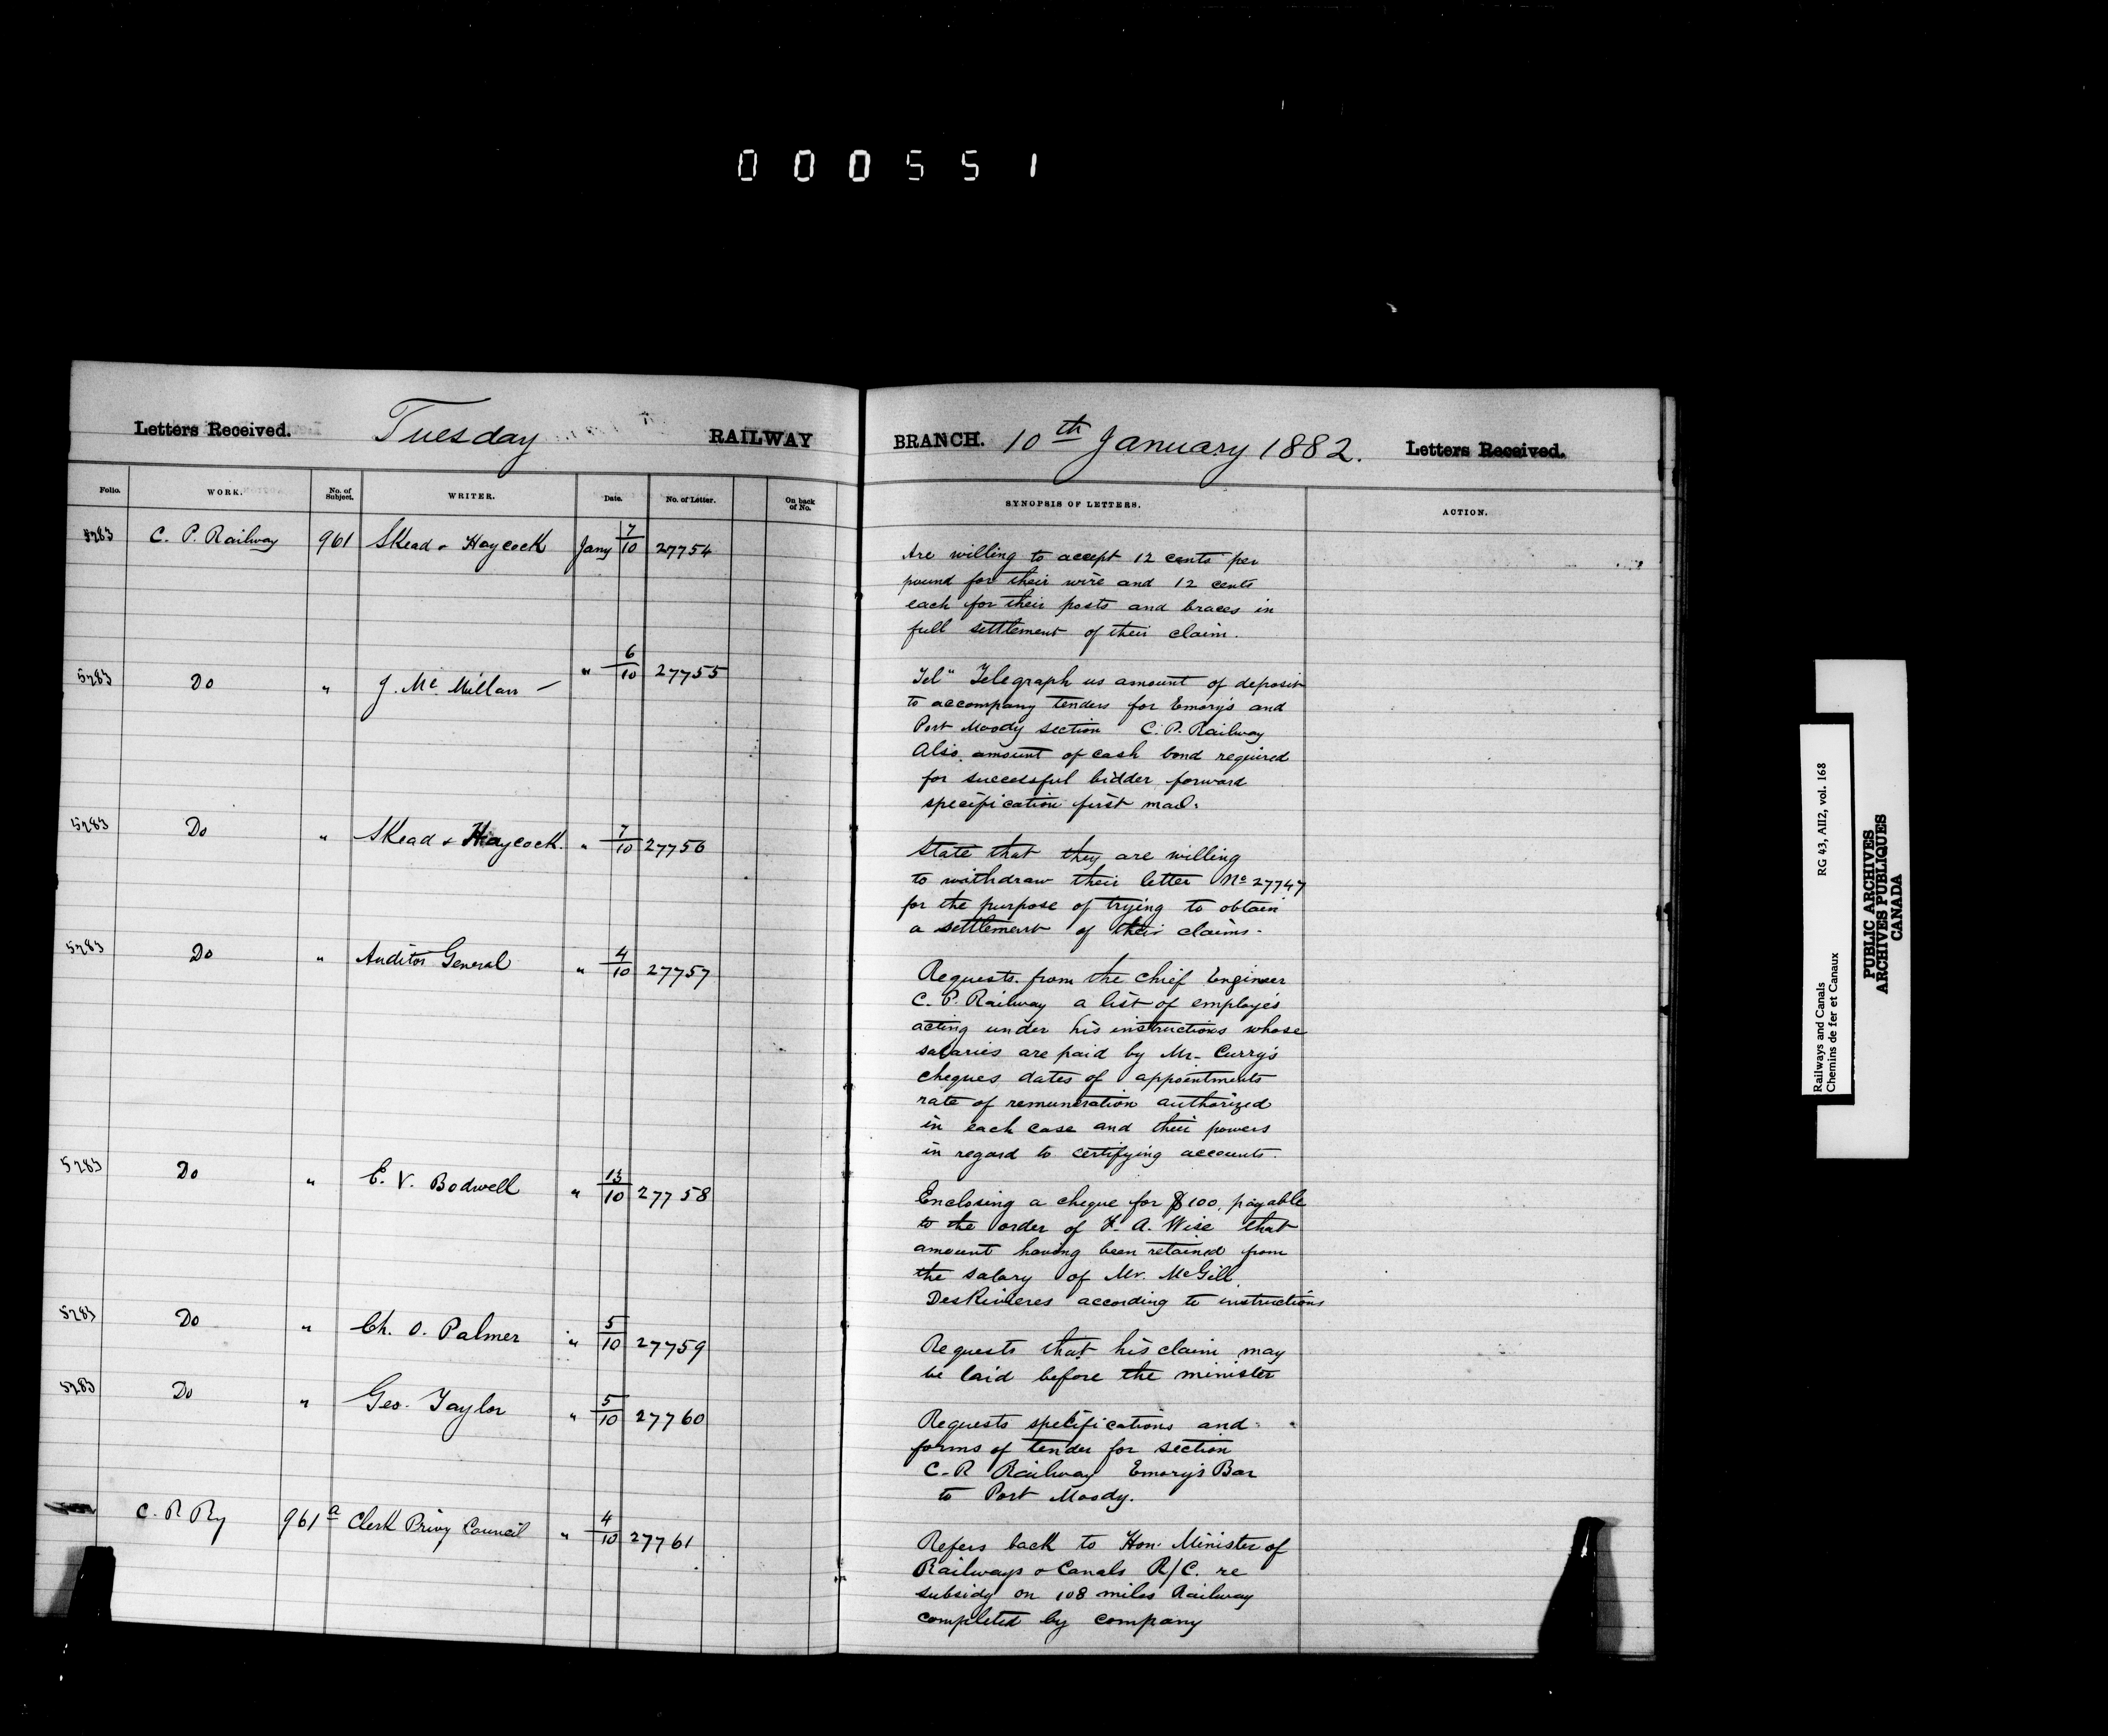 000551
Letters Received. Tuesday RAILWAY
Folio. WORK. No. of Subject. WRITER. Date. No. of Letter. On back of No.
5283 C. P. Railway 961 Skead & Haycock Jany 7/10 27754
5283 Do " J. Mc Millan — " 6/10 27755
5283 Do " Skead & Haycock. " 7/10 27756
5283 Do " Auditor General " 4/10 27757
5283 Do " E. V. Bodwell " 13/10 27758
5283 Do " Ch. O. Palmer " 5/10 27759
5283 Do " Geo. Taylor " 5/10 27760
C. P. Ry 961a Clerk Privy Council " 4/10 27761
BRANCH. 10th January 1882. Letters Received.
SYNOPSIS OF LETTERS. ACTION.
Are willing to accept 12 cents per
pound for their wire and 12 cents
each for their posts and braces in
full settlement of their claim.
Tel" Telegraph us amount of deposit
to accompany tenders for Emory's and
Port Moody section C. P. Railway
Also amount of cash bond required
for successful bidder forward
specification first mail.
State that they are willing
to withdraw their letter No 27747
for the purpose of trying to obtain
a settlement of their claims.
Requests from the Chief Engineer
C. P. Railway a list of employés
acting under his instructions whose
salaries are paid by Mr. Curry's
cheques dates of appointments
rate of remuneration authorized
in each case and their powers
in regard to certifying accounts.
Enclosing a cheque for $100. payable
to the order of F. A. Wise that
amount having been retained from
the salary of Mr. McGill
DesRivieres according to instructions
Requests that his claim may
be laid before the minister
Requests specifications and
forms of tender for section
C. P. Railway Emory's Bar
to Port Moody.
Refers back to Hon. Minister of
Railways & Canals R/C. re
subsidy on 108 miles Railway
completed by company
Railways and Canals RG 43, AII2, vol. 168
Chemins de fer et Canaux
PUBLIC ARCHIVES
ARCHIVES PUBLIQUES
CANADA